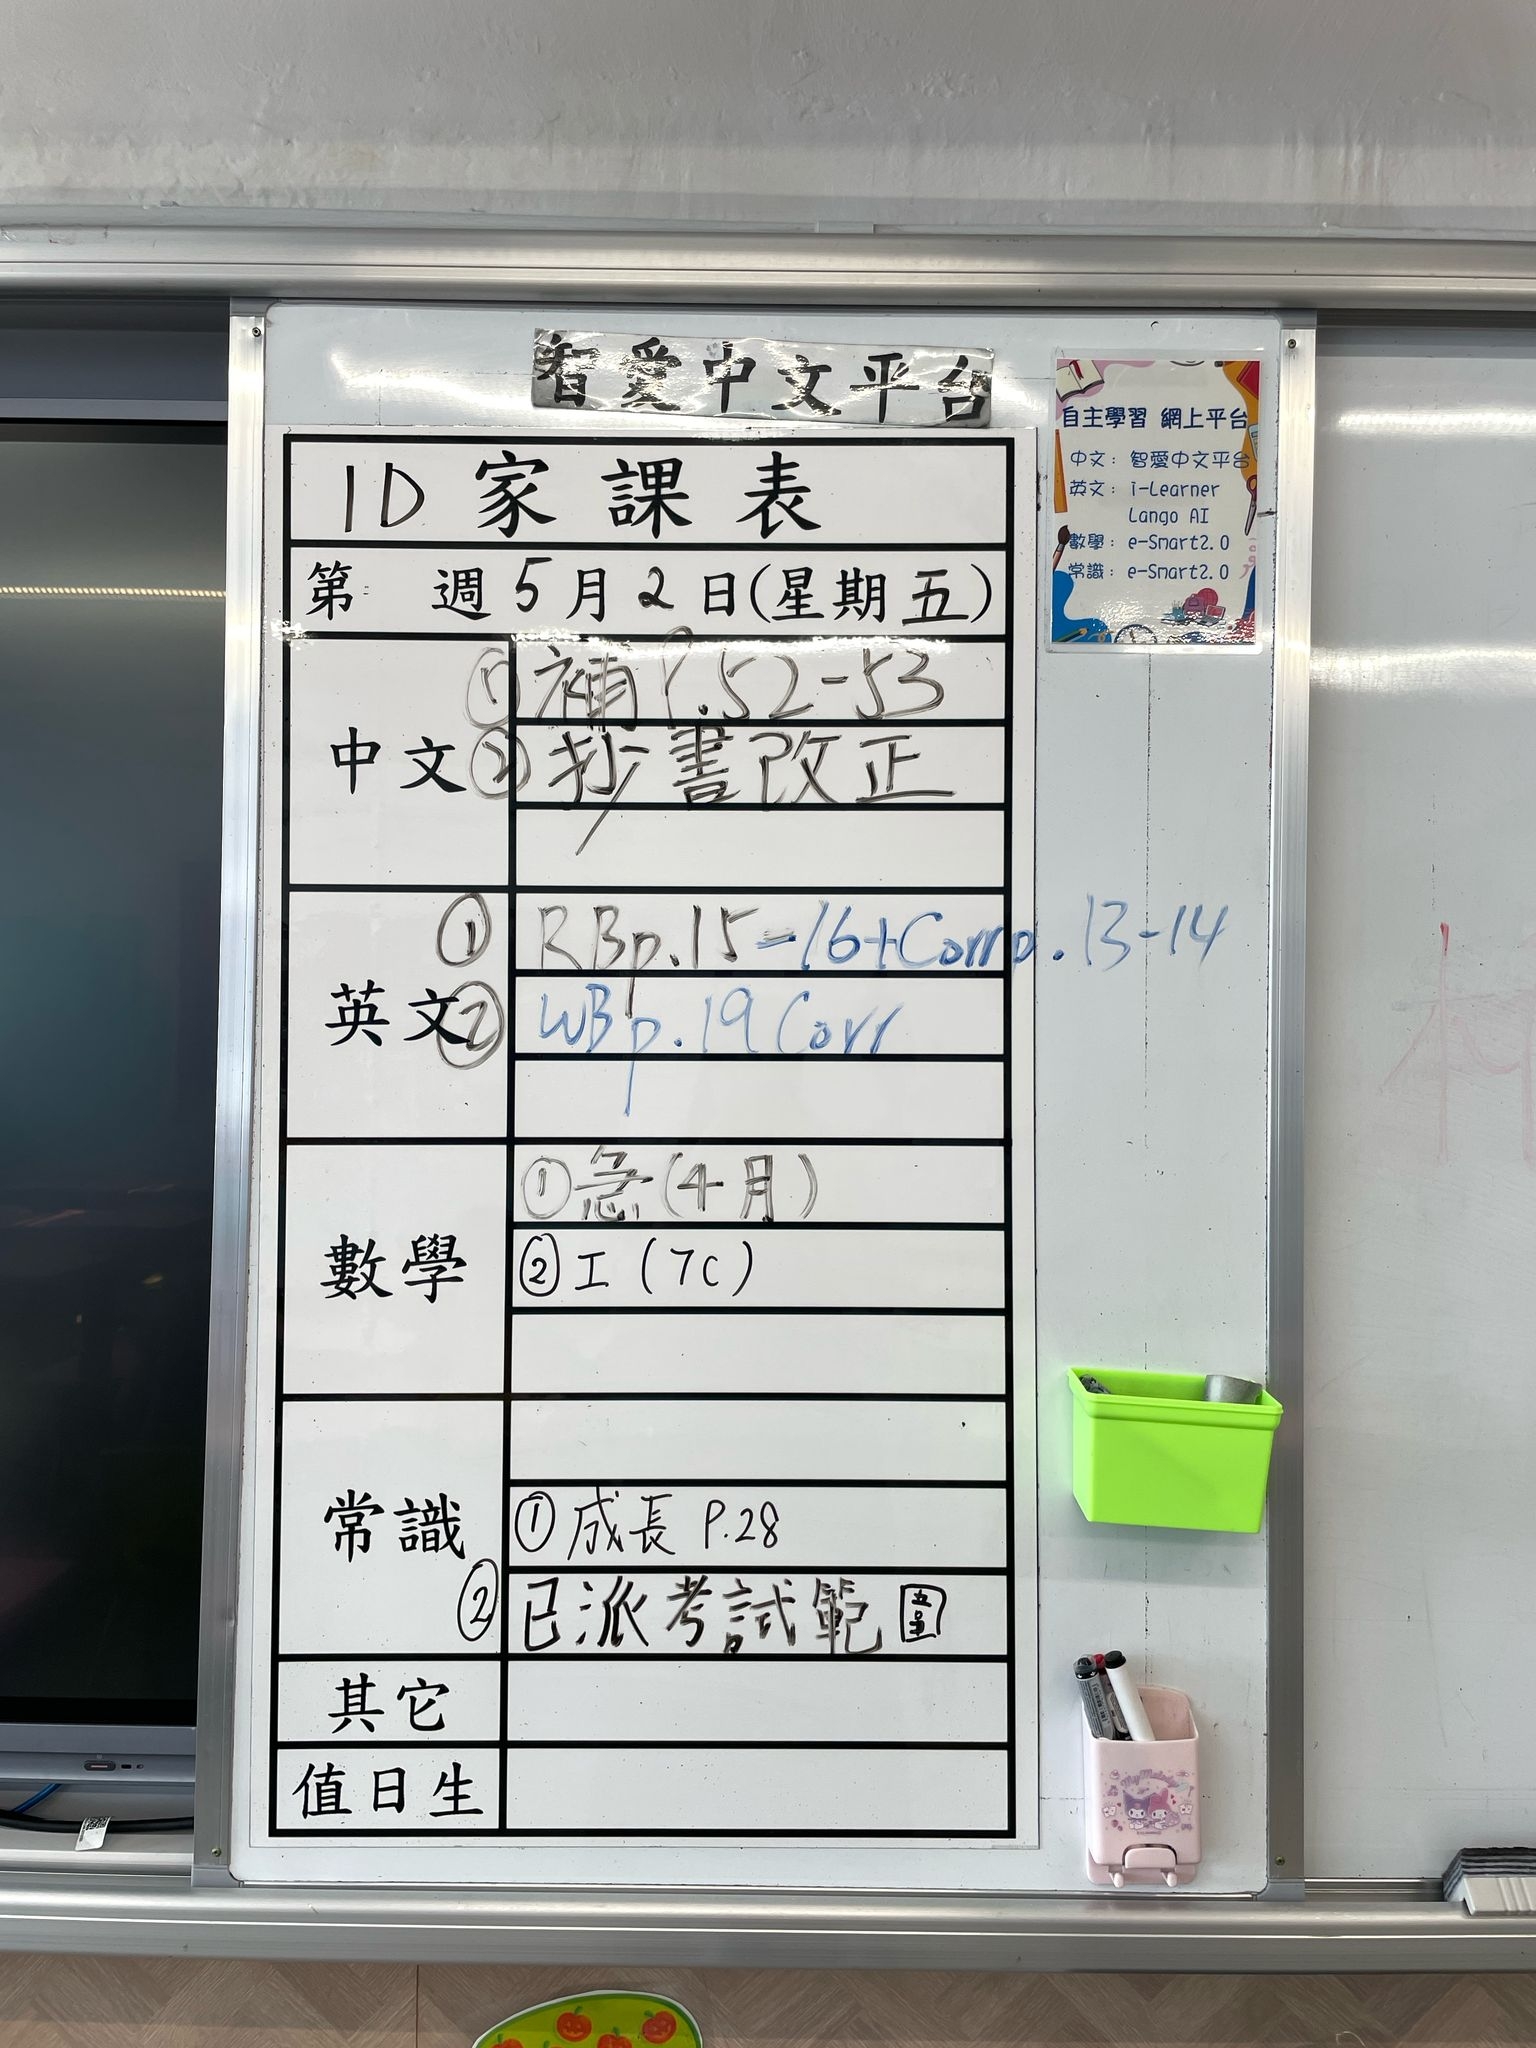 智愛中文平台
自主學習 網上平台
中文：智愛中文平台
英文：i-Learner
Lango AI
數學：e-Smart2.0
常識：e-Smart2.0
1D 家課表
第 週 5月2日(星期五)
中文
① 補 P.52-53
② 抄書改正
英文
① RB p.15-16+Corr p.13-14
② WB p.19 Corr
數學
① 急(4月)
② 工(7C)
常識
① 成長 P.28
② 已派考試範圍
其它
值日生
My Melody